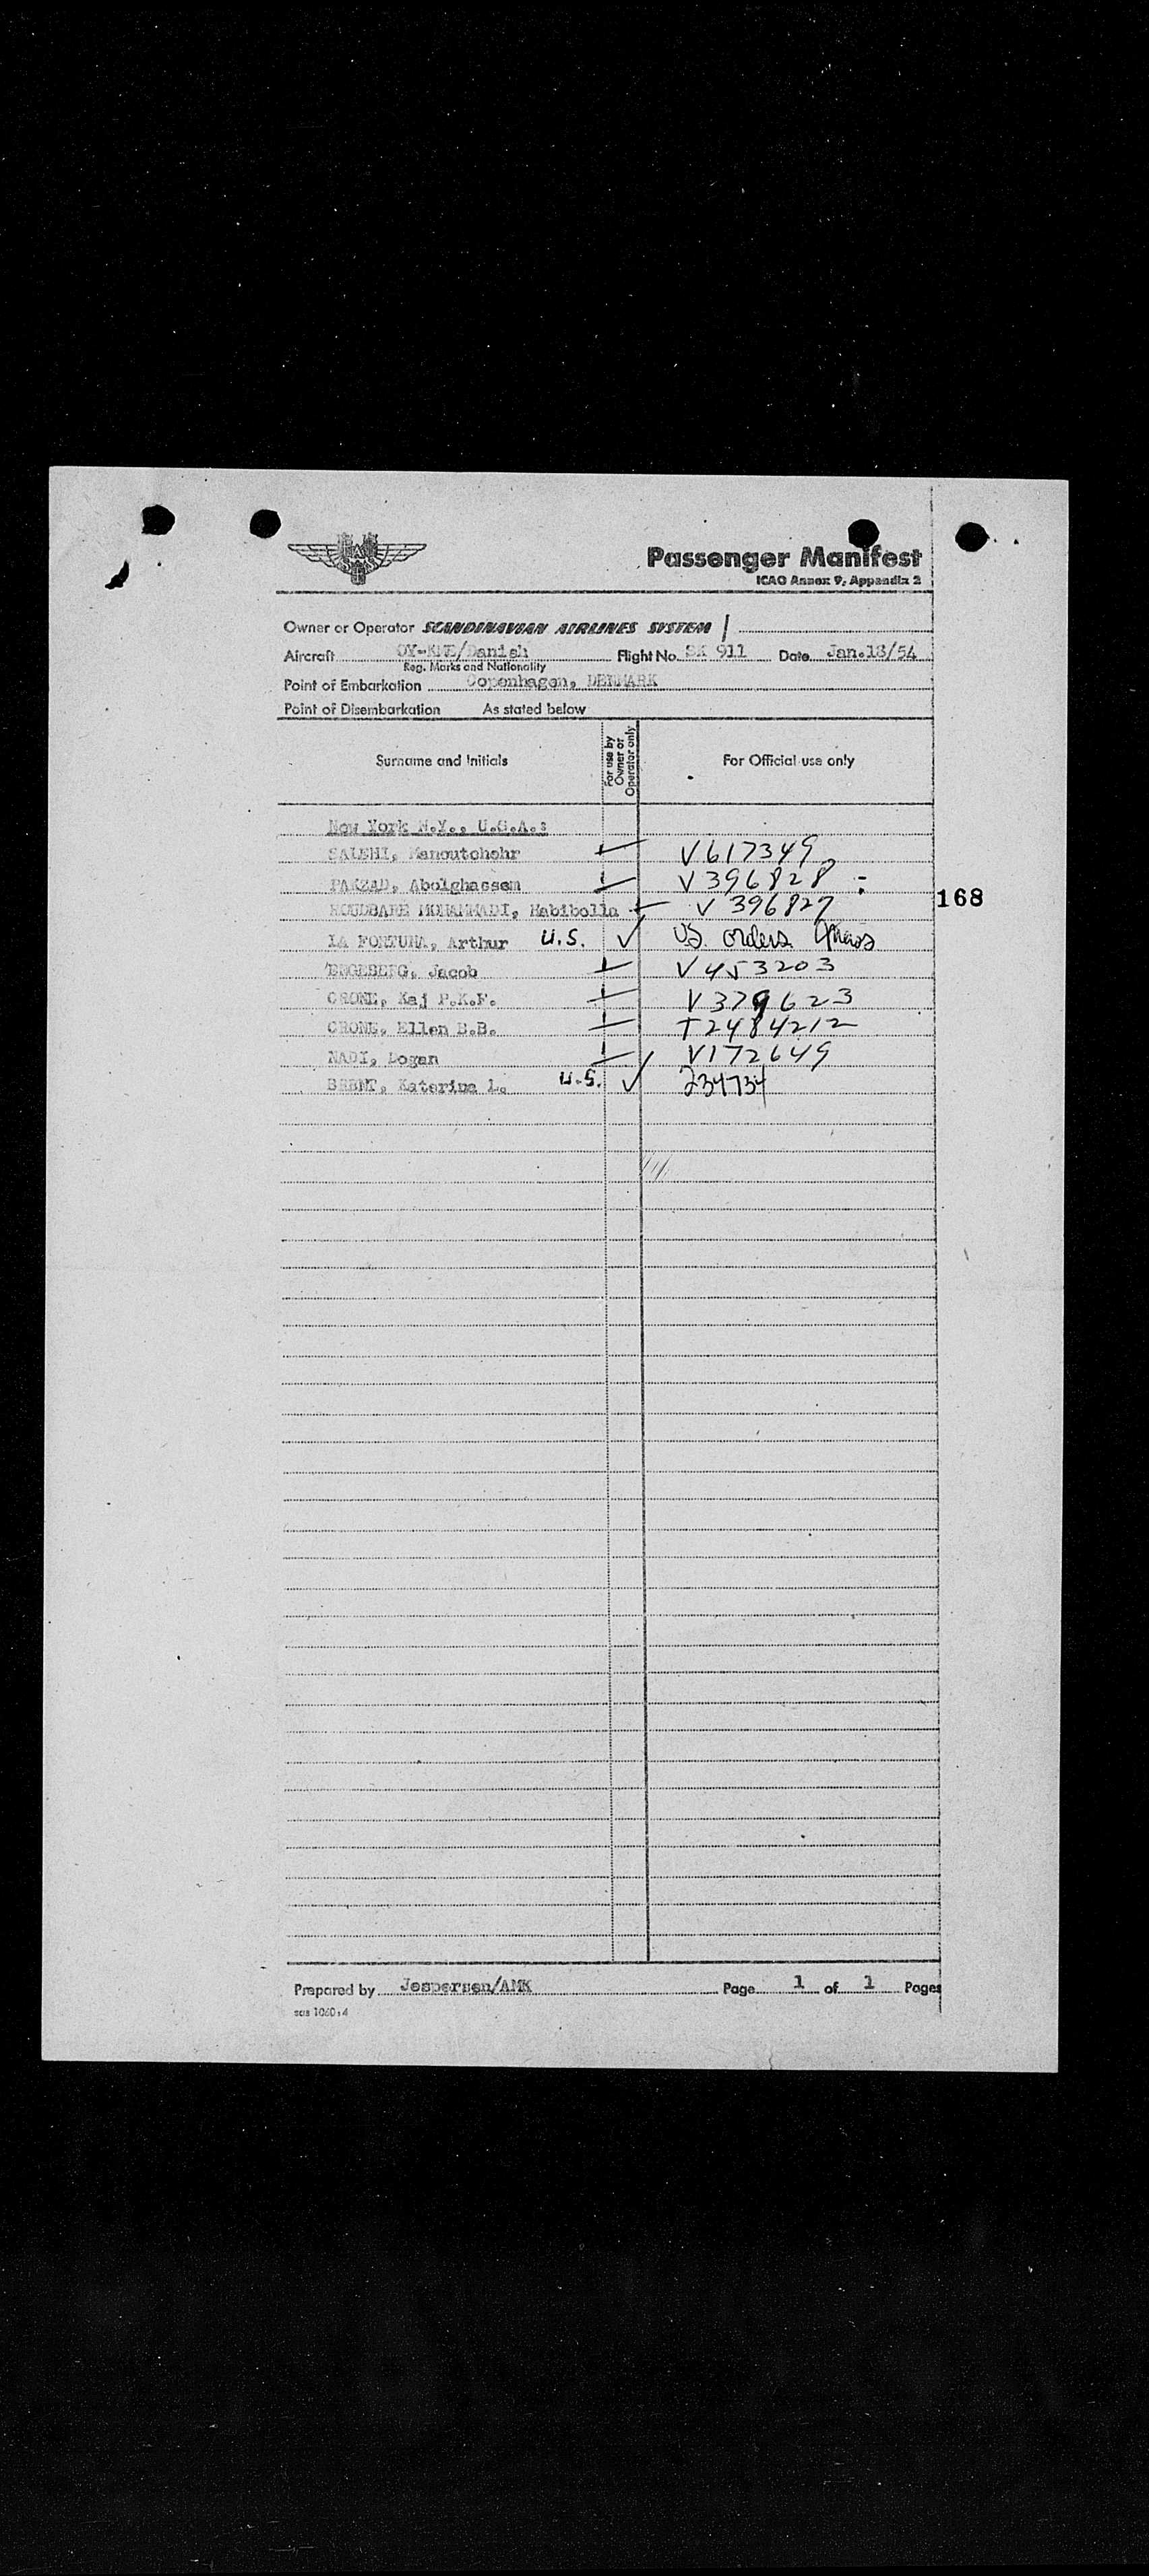 SAS
Passenger Manifest
ICAO Annex 9, Appendix 2
Owner or Operator SCANDINAVIAN AIRLINES SYSTEM /
Aircraft /Danish Flight No. SK 911 Date Jan.18/54
Reg. Marks and Nationality
Point of Embarkation Copenhagen, DENMARK
Point of Disembarkation As stated below
Surname and Initials For use by Owner or Operator only For Official use only
New York N.Y., U.S.A.:
SALEHI, Manoutchehr V617349
PAKZAD, Abolghassem V396828
168
ROUDBARE MOHAMMADI, Habibolla V 396827
LA FORTUNA, Arthur U.S. ✓ US. orders
Jacob V453203
CRONE, Kaj P.K.F. V379623
CRONE, Ellen B.B. T2484212
NADI, Dogan V172649
BRENT, Katerina L. U.S. ✓ 234734
Prepared by Jespersen/AMK Page 1 of 1 Pages
sas 1060:4